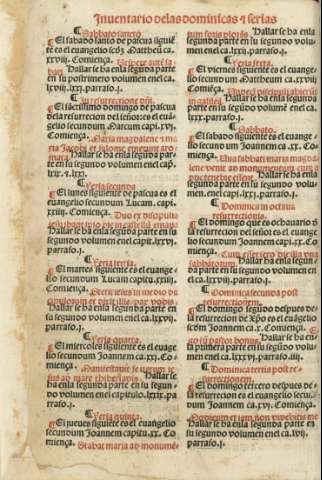 Inuentario delas dominicas ⁊ ferias
¶ Sabbato sancto
¶ El sabado santo de pascua siguiẽ
te es el euangelio scd̃z Mattheũ ca.
xxviij. Comiença. Uespere autẽ sa
bati. Hallar se ha enla segunda parte
en su postrimero volumen enel ca.
lxviij. parrafo.j.
¶ El sctissimo domingo de pascua
dela resurrecion del señor: es el euã-
gelio secundum Marcum capi.xvj.
Comiença. Maria magdalene ⁊ ma
ria Jacobi et
Hallar se ha enla segunda
parte en su segundo volumen enel cap.
¶ Feria secunda
¶ El lunes siguiente de pascua es el
euangelio secundum Lucam. capi.
xxiiij. Comiença. Duo ex discipulis
Hallar se ha enla segunda parte en su se-
gundo volumen enel capit.lxxvj.
parrafo.j.
¶ Feria tertia.
¶ El martes siguiente es el euange-
lio secundum Lucam capitu.xxiiij.
Comiença. Stetit iesus in medio dis
cipulorum et dixit illis: pax vobis.
Hallar se ha enla segunda parte en su
segundo volumen enel ca.lxxix.
parrafo.j.
¶ Feria quarta.
¶ El miercoles siguiente es el euan-
gelio secundum Joannem ca.xxj. Co
miença. Manifestauit se iterum ie-
sus ad mare thiberiadis. Hallar se
ha enla segunda parte en su segun-
do volumen enel capitulo.lxxix.
parrafo.j.
¶ Feria quinta.
¶ El jueues siguiẽte es el euangelio
secundum Joannem capitu.xx. Co
miença. Stabat maria ad monumẽ-
tum foris plorãs. Hallar se ha enla
segunda parte en su segundo volu-
men enel ca.lxxj.parrafo.j.
¶ Feria sexta.
¶ El viernes siguiente es el euange-
lio secundum Mattheum ca.xxviij.
Comiença. Undecĩ discipuli abierũt
in galileã. Hallar se ha enla segunda
parte en su segũdo volumẽ enel ca.
parrafo.j.
¶ Sabbato.
¶ El sabado siguiente es el euange-
lio secundum Joannem capitu.xx.
Comiença. Una sabbati maria magda-
lene venit ad monumentum cum
Hallar se ha enla
segunda parte en su segundo volu-
men enel ca.lxxj.parrafo.j.
¶ Dominica in octaua
resurrectionis.
¶ El domingo que es ochauario d̃
la resurrecion del señor es el euange-
lio secundum Joannem capi.xx. Co
miença. Cum esset sero die illa vna
sabbatorum. Hallar se ha enla segun-
da parte en su segundo volumen en
el ca.
¶ Dominica secunda post
resurrectionem.
¶ El domingo segũdo despues de
la resurrecion de xp̃o es el euãgelio
scd̃m Joannem ca.x. Comiença. E
go sũ pastor bonus. Hallar se ha en
la segunda parte en su segũdo volu-
men enel ca.lxxxvj.parrafo.iiij.
¶ Dominica tertia post re-
surrectionem.
¶ El domingo tercero despues de-
la resurrecion es el euangelio secun
dum Joannem ca.xvj. Comiença.
Modicum et iam non videbitis me.
Hallar se ha enla segunda parte en su
segundo volumen enel ca.lvij.
parrafo.j.